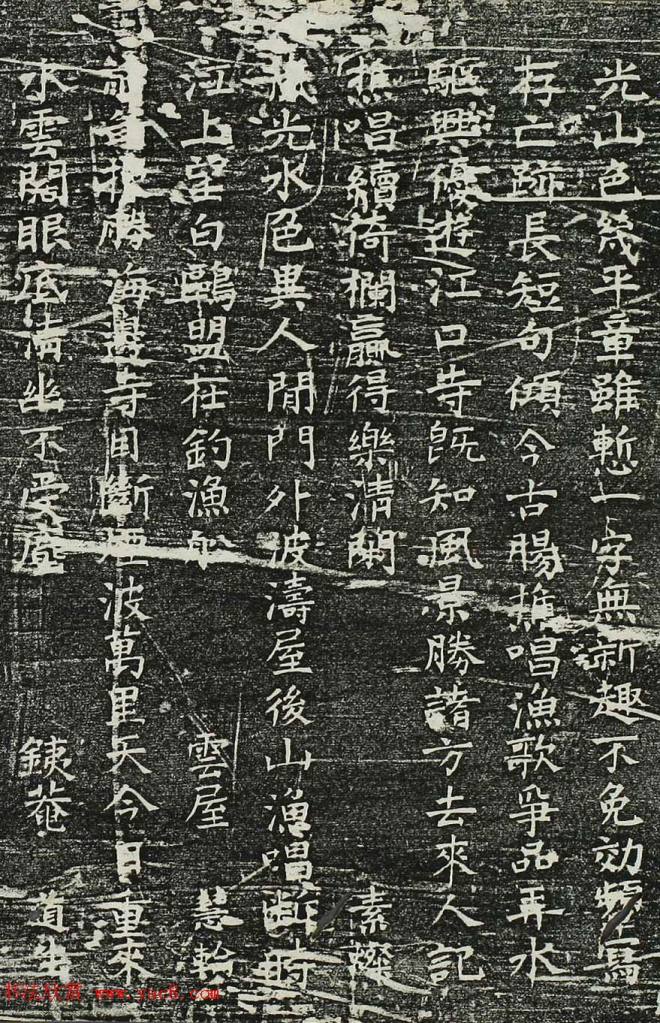 光山色幾平章雖慙一字無新趣不免効顰焉
存亡跡長短句傾今古腸樵唱漁歌爭品再水
驅興優遊江口寺既知風景勝諸方去來人記
樵唱續倚欄贏得樂清閑 素璨
光水色異人間門外波濤屋後山漁唱斷時
江上望白鷗盟在釣漁船 雲屋 慧輪
勝海邊寺目斷煙波萬里天今日重來
水雲閣眼底清幽不受塵 鉄菴 道生
书法欣赏 www.yac8.com